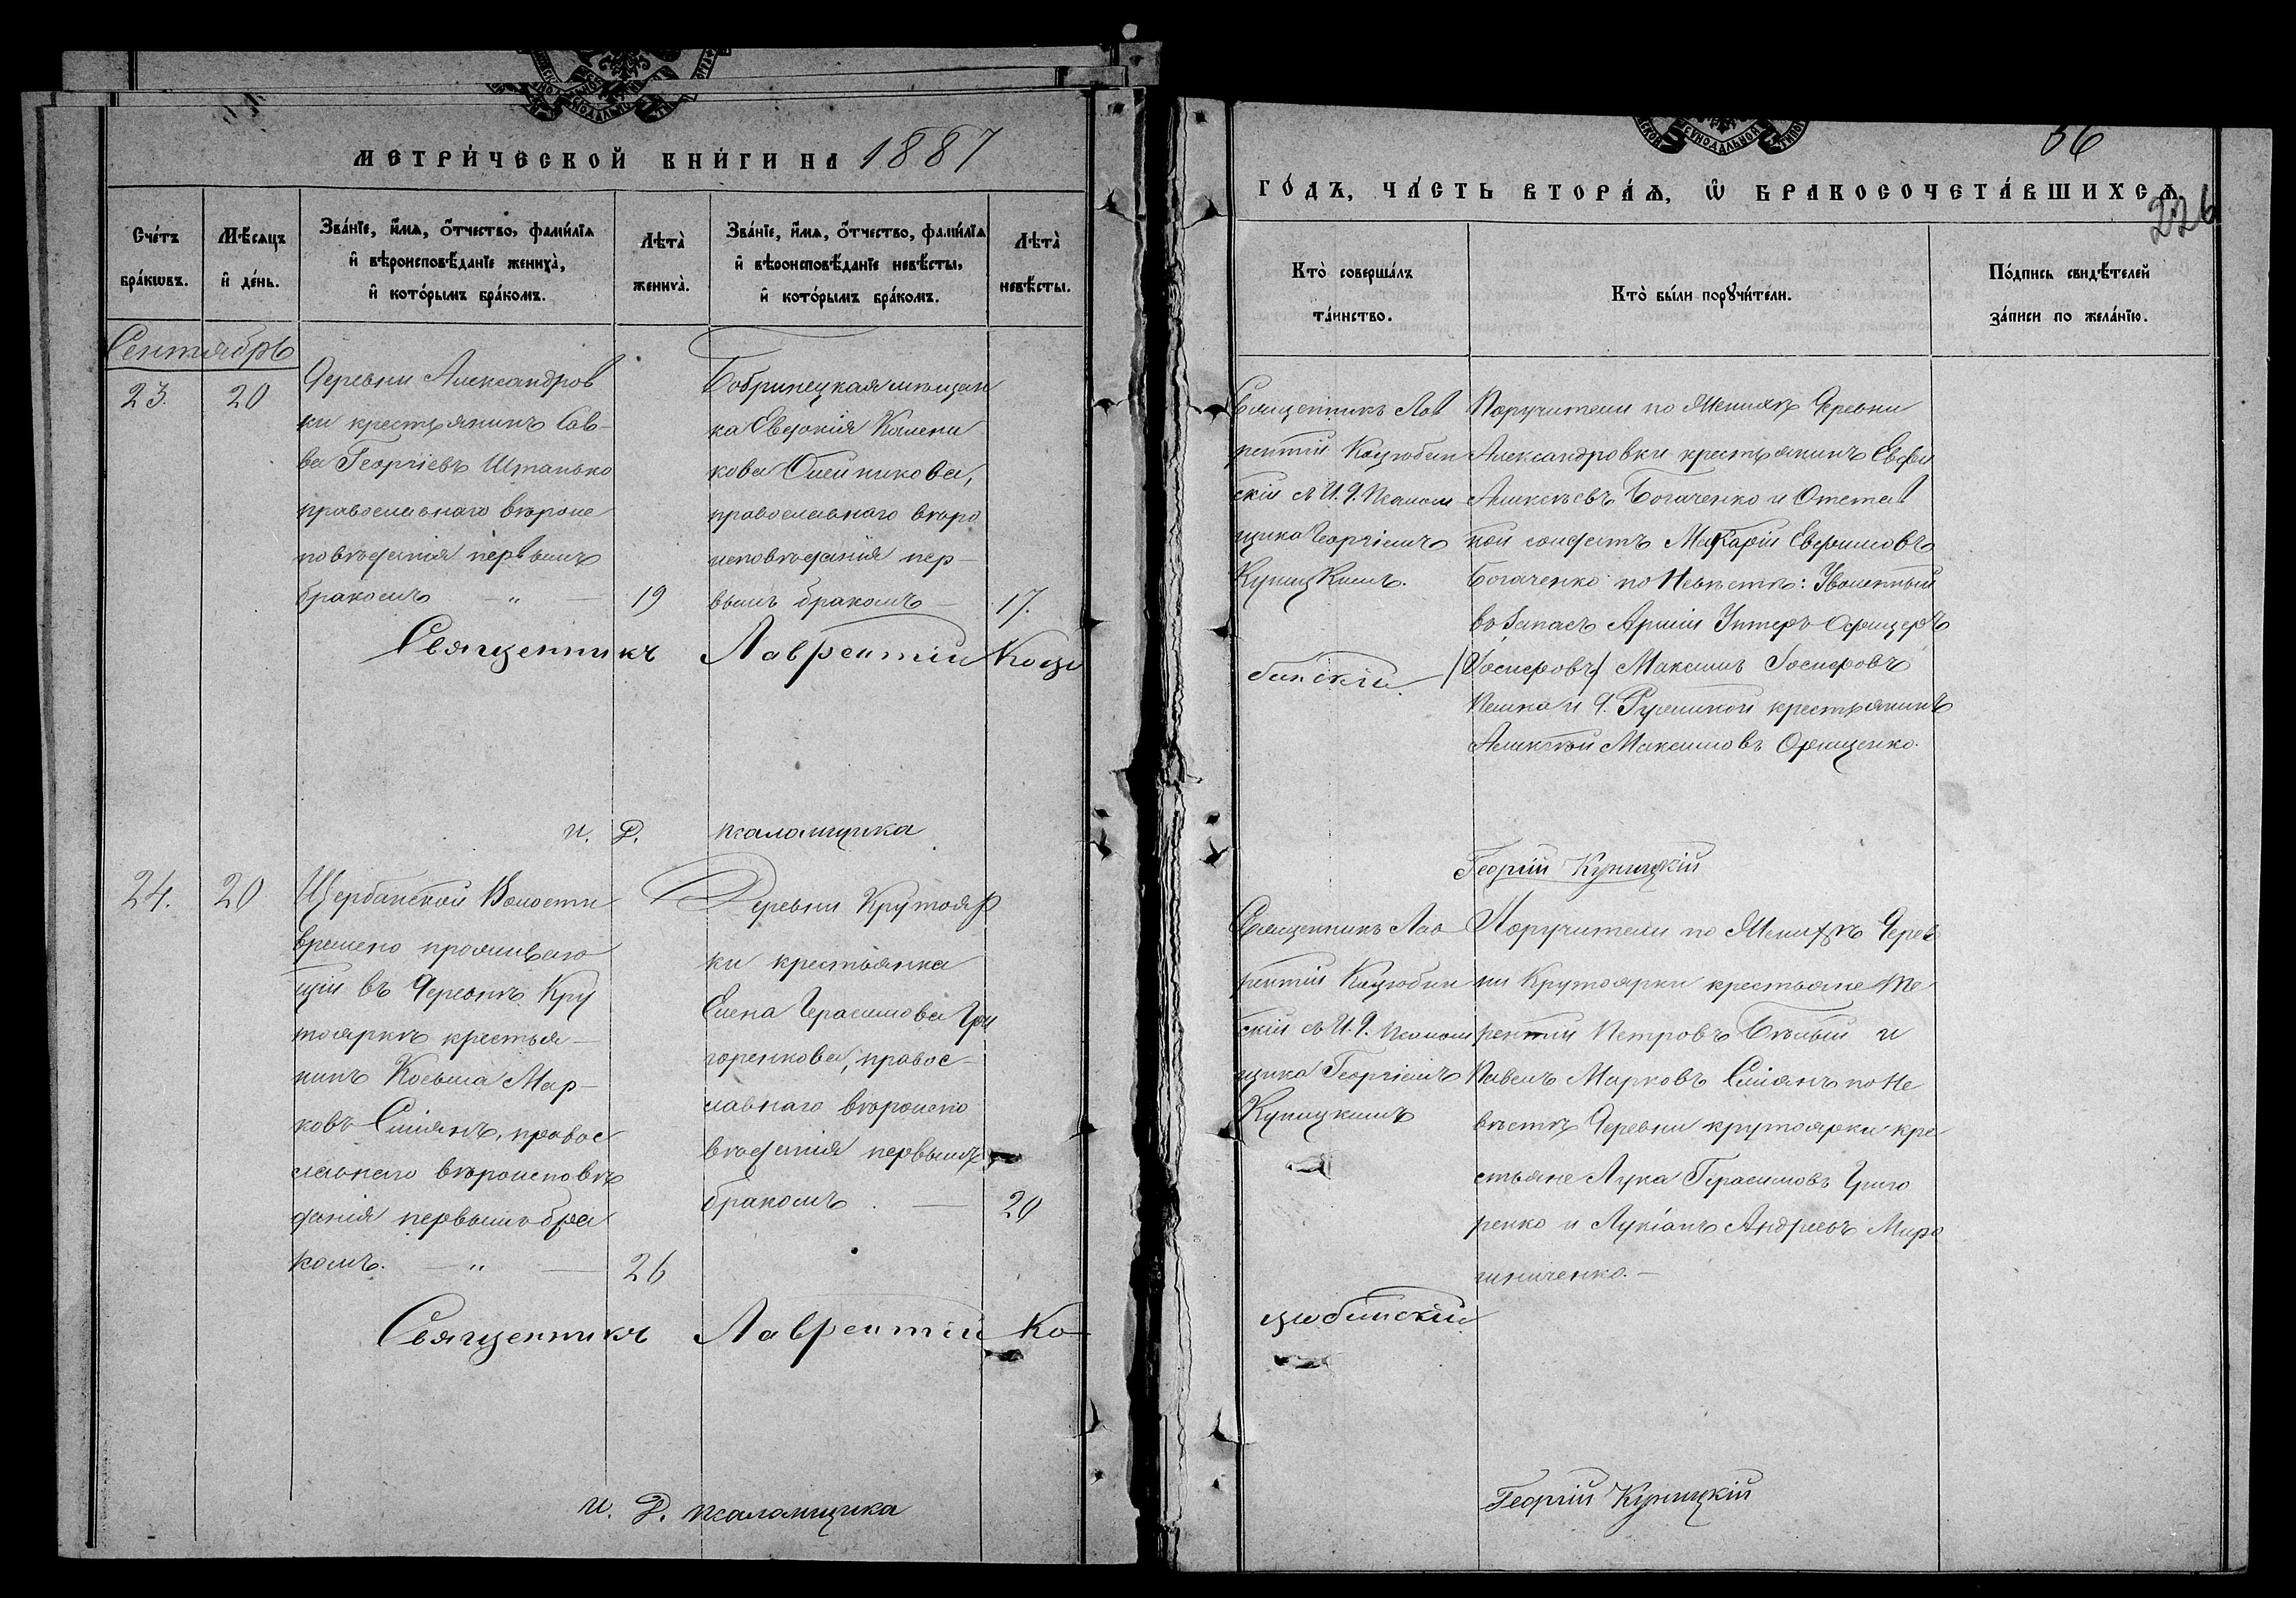 МЕТРИ́ЧЕСКОЙ КНИ́ГИ НА 1887
Сче́тъ бра́кѡвъ.
Мѣ́сяцъ и҆ де́нь.
Зва́нїе, и҆́мѧ, ѻ҆́тчество, фами́лїѧ
и҆ вѣроисповѣ́данїе жениха̀,
и҆ кото́рымъ бра́комъ.
Лѣта̀ жениха̀.
Зва́нїе, и҆́мѧ, ѻ҆́тчество, фами́лїѧ
и҆ вѣроисповѣ́данїе невѣ́сты,
и҆ кото́рымъ бра́комъ.
Лѣта̀ невѣ́сты.
Сентябрь
23.
20
Деревни Александров
ки крестьянинъ Сав-
ва Георгіевъ Штанько
православнаго вѣроис
повѣданія первымъ
бракомъ — „ — 19
Бобринецкая мѣщан
ка Евдокія
кова Олейникова,
православнаго вѣро
исповѣданія пер-
вымъ бракомъ — 17.
Священникъ Лаврентій Коцю
и. д. псаломщика
24.
20
Щербанской Волости
времено проживаю
щій въ Деревнѣ Кру
тояркѣ крестья-
нинъ Косьма Мар-
ковъ Сліянъ, правос
лавнаго вѣроисповѣ
данія первымъ бра
комъ. — „ — 26
Деревни Крутояр
ки крестьянка
Елена Герасимова Гри
горенкова, правос-
лавнаго вѣроиспо
вѣданія первымъ
бракомъ. — 20
Священникъ Лаврентій Ко-
и. д. псаломщика
56
ГО́ДЪ, ЧА́СТЬ ВТОРА́Ѧ, Ѡ҆ БРАКОСОЧЕТА́ВШИХСѦ.
226
Кто̀ соверша́лъ
та́инство.
Кто̀ бы́ли порꙋчи́тели.
По́дпись свидѣ́телей
за́писи по жела́нїю.
Священникъ Лав
рентій Коцюбин
скій съ И. Д. Псалом
щика Георгіемъ
Куницкимъ.
Поручители по Женихѣ Деревни
Александровки крестьянинъ Евфим
Алексѣевъ Богаченко и Отстав
ной солдатъ Макарій Евфимовъ
Богаченко по Невѣстѣ: Уволенный
въ Запасъ Арміи Унтеръ-Офицеръ
(Іосифовъ) Максимъ Іосифовъ
крестьянинъ
Алексѣй Максимовъ
бинскій.
Георгій Куницкій
Священникъ Лав
рентій Коцюбин
скій съ И. Д. Псалом
щика Георгіемъ
Куницкимъ
Поручители по Женихѣ Дерев
ни Крутоярки крестьяне Те
рентій Петровъ Бѣлый и
Павелъ Марковъ Сліянъ по Не
вѣстѣ Деревни крутоярки кре
стьяне Лука Герасимовъ Григо
ренко и Лукіанъ Андреевъ Миро
шниченко. —
цюбинскій
Георгій Куницкій